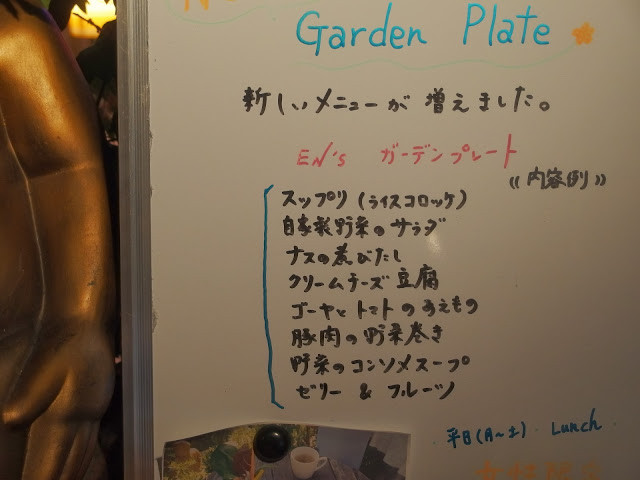 Garden Plate
新しいメニューが 増えました。
EN's ガーデンプレート
《内容例》
スップリ (ライスコロッケ)
自家製野菜のサラダ
ナスの煮びたし
クリームチーズ豆腐
ゴーヤとトマトのあえもの
豚肉の野菜巻き
野菜のコンソメスープ
ゼリー & フルーツ
平日(月〜土)・Lunch